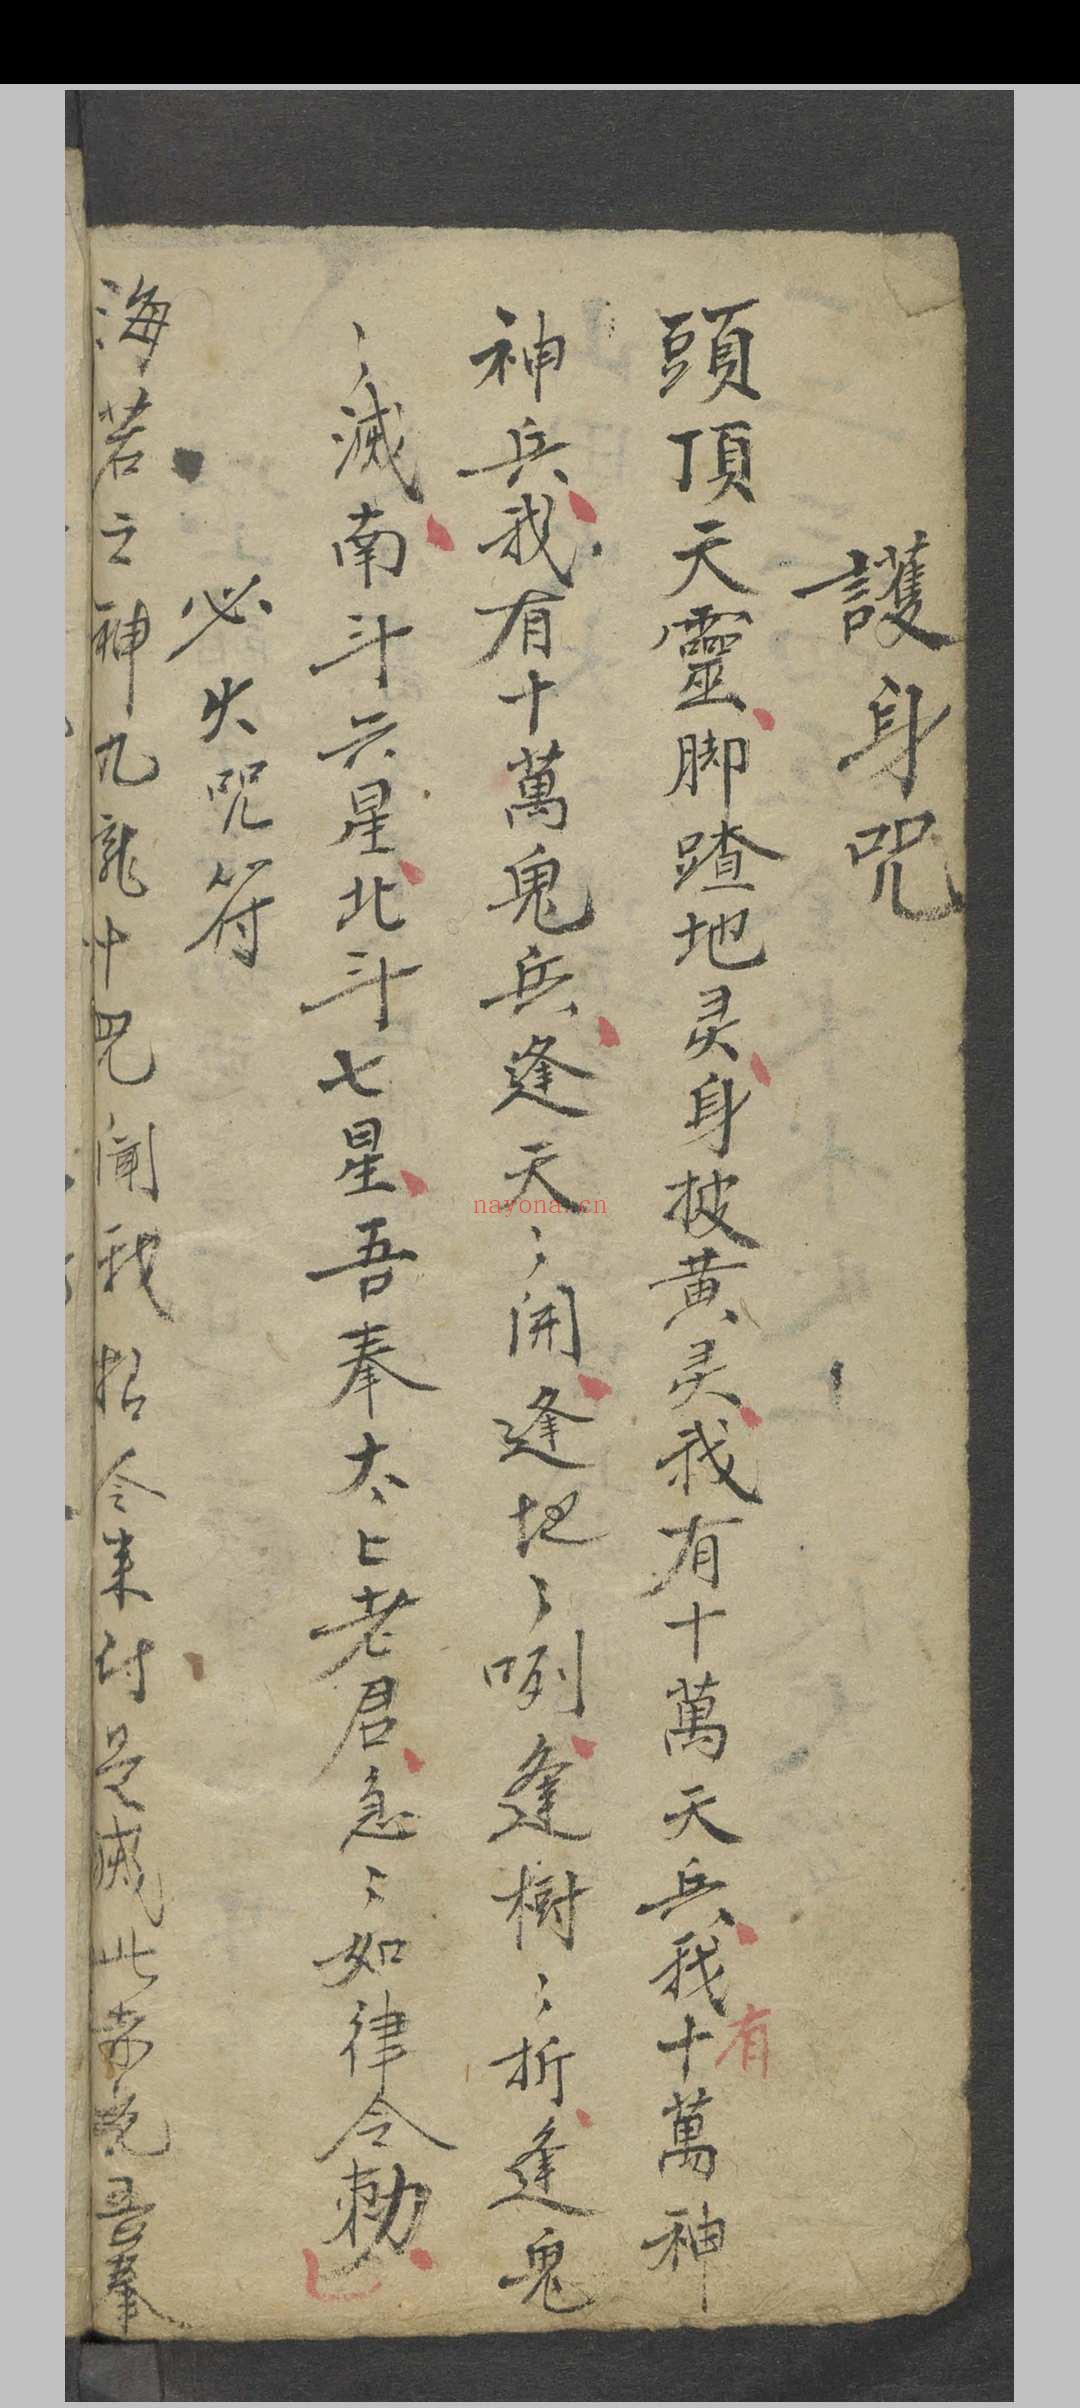 護身咒
頭頂天靈脚蹅地灵身披黄灵我有十萬天兵我有十萬神
神兵我有十萬鬼兵逢天〻開逢地〻咧逢樹〻折逢鬼
〻滅南斗六星北斗七星吾奉太上老君急〻如律令勅
必火咒符
海若之神九龍十咒闻我招令来付是滅此赤光吾奉
nayona.cn